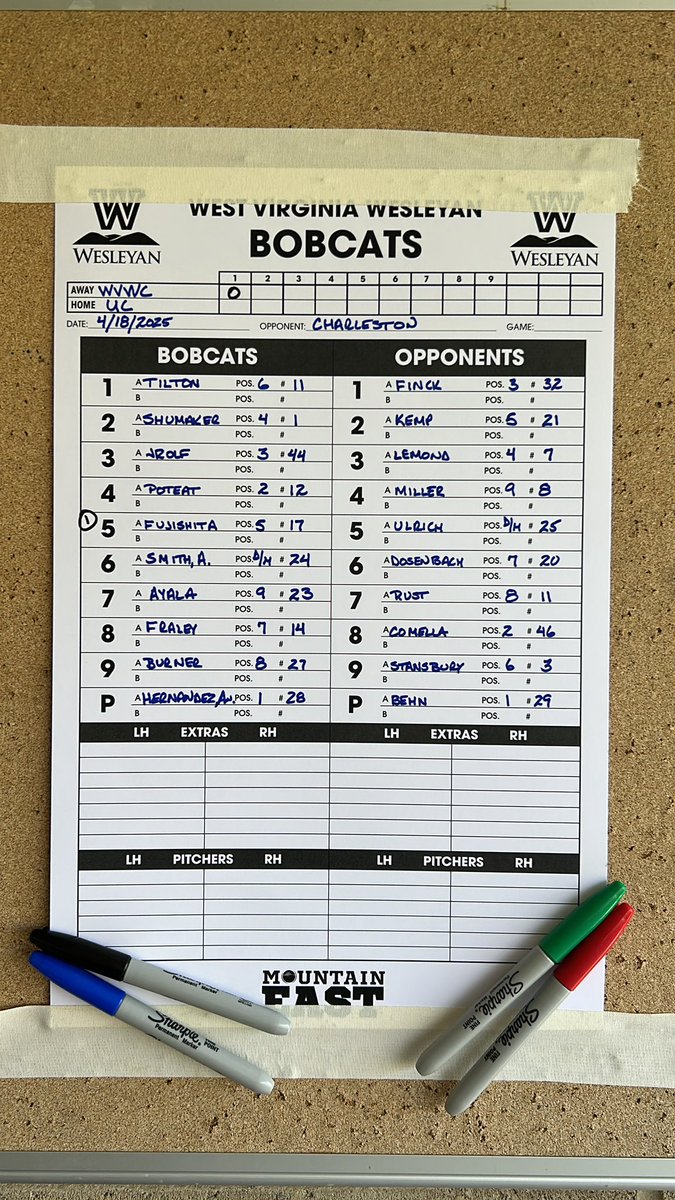 WEST VIRGINIA WESLEYAN
W WESLEYAN
BOBCATS
W WESLEYAN
1 2 3 4 5 6 7 8 9
AWAY WVWC 0
HOME UC
DATE: 4/18/2025 OPPONENT: CHARLESTON GAME:
BOBCATS OPPONENTS
1 A TILTON POS. 6 # 11 1 A FINCK POS. 3 # 32
B POS. # B POS. #
2 A SHUMAKER POS. 4 # 1 2 A KEMP POS. 5 # 21
B POS. # B POS. #
3 A JROLF POS. 3 # 44 3 A LEMOND POS. 4 # 7
B POS. # B POS. #
4 A POTEAT POS. 2 # 12 4 A MILLER POS. 9 # 8
B POS. # B POS. #
1 5 A FUJISHITA POS. 5 # 17 5 A ULRICH POS. D/H # 25
B POS. # B POS. #
6 A SMITH, A. POS. D/H # 24 6 A DOSENBACH POS. 7 # 20
B POS. # B POS. #
7 A AYALA POS. 9 # 23 7 A RUST POS. 8 # 11
B POS. # B POS. #
8 A FRALEY POS. 7 # 14 8 A COMELLA POS. 2 # 46
B POS. # B POS. #
9 A BURNER POS. 8 # 27 9 A STANSBURY POS. 6 # 3
B POS. # B POS. #
P A HERNANDEZ, AN. POS. 1 # 28 P A BEHN POS. 1 # 29
B POS. # B POS. #
LH EXTRAS RH LH EXTRAS RH
LH PITCHERS RH LH PITCHERS RH
MOUNTAIN
EAST
Permanent Marker
Sharpie
Permanent Marker
FINE POINT
Sharpie
FINE
Sharpie
FINE POINT